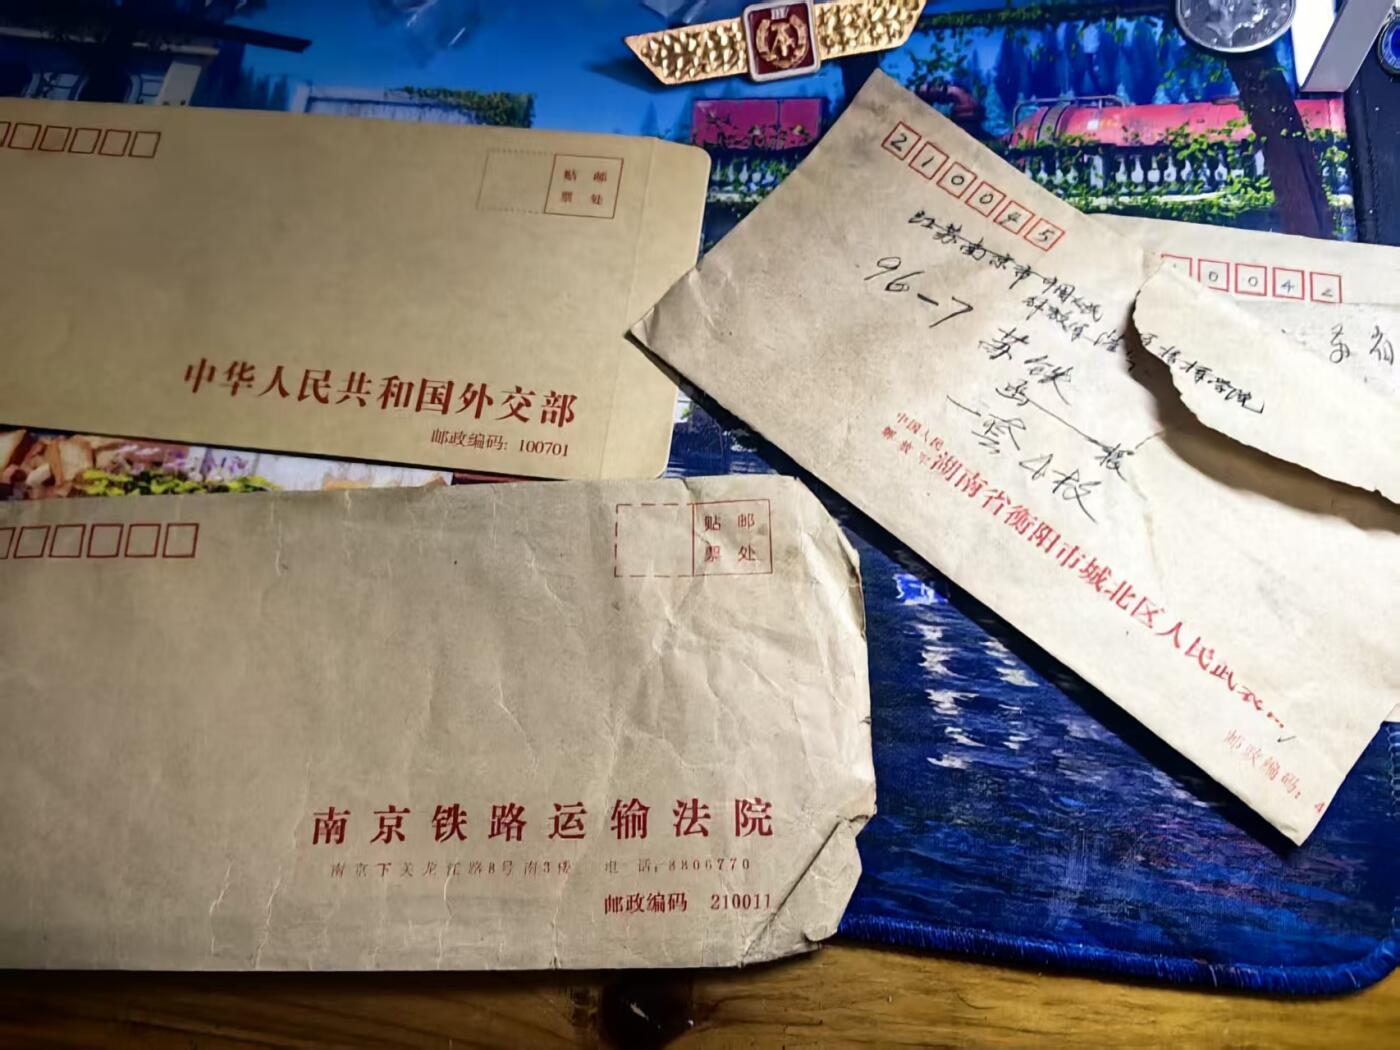 贴 邮
票 处
中华人民共和国外交部
邮政编码: 100701
贴 邮
票 处
南京铁路运输法院
南京下关龙江路8号南3楼 电 话:8806770
邮政编码 210011
210045
江苏南京市中国人民
解放军
指挥学院
96-7
苏铁
中国人民
解放军
湖南省衡阳市城北区人民武
邮政编码: 4
0042